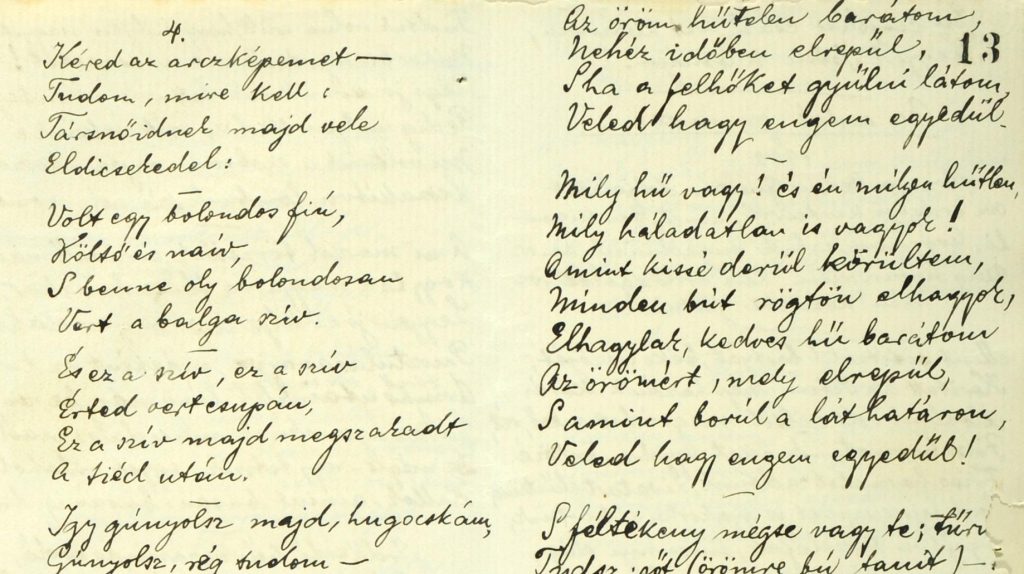 4.
Kéred az arczképemet —
Tudom, mire kell:
Társnőidnek majd vele
Eldicsekedel:
Volt egy bolondos fiú,
Költő és naiv,
S benne oly bolondosan
Vert a balga szív.
És ez a szív, ez a szív
Érted vert csupán,
Ez a szív majd megszakadt
A tiéd után.
Igy gúnyolsz majd, hugocskám,
Gúnyolsz, rég tudom —
13
Az öröm hűtelen barátom,
Nehéz időben elrepül,
S ha a felhőket gyűlni látom,
Veled hagy engem egyedül.
Mily hű vagy! és én milyen hűtlen,
Mily háladatlan is vagyok!
Amint kissé derűl körűltem,
Minden bút rögtön elhagyok,
Elhagylak, kedves hű barátom
Az örömért, mely elrepűl,
S amint borúl a láthatáron,
Veled hagy engem egyedűl!
S féltékeny mégse vagy te; tűri
Tudsz, sőt (örömre bú tanit) —